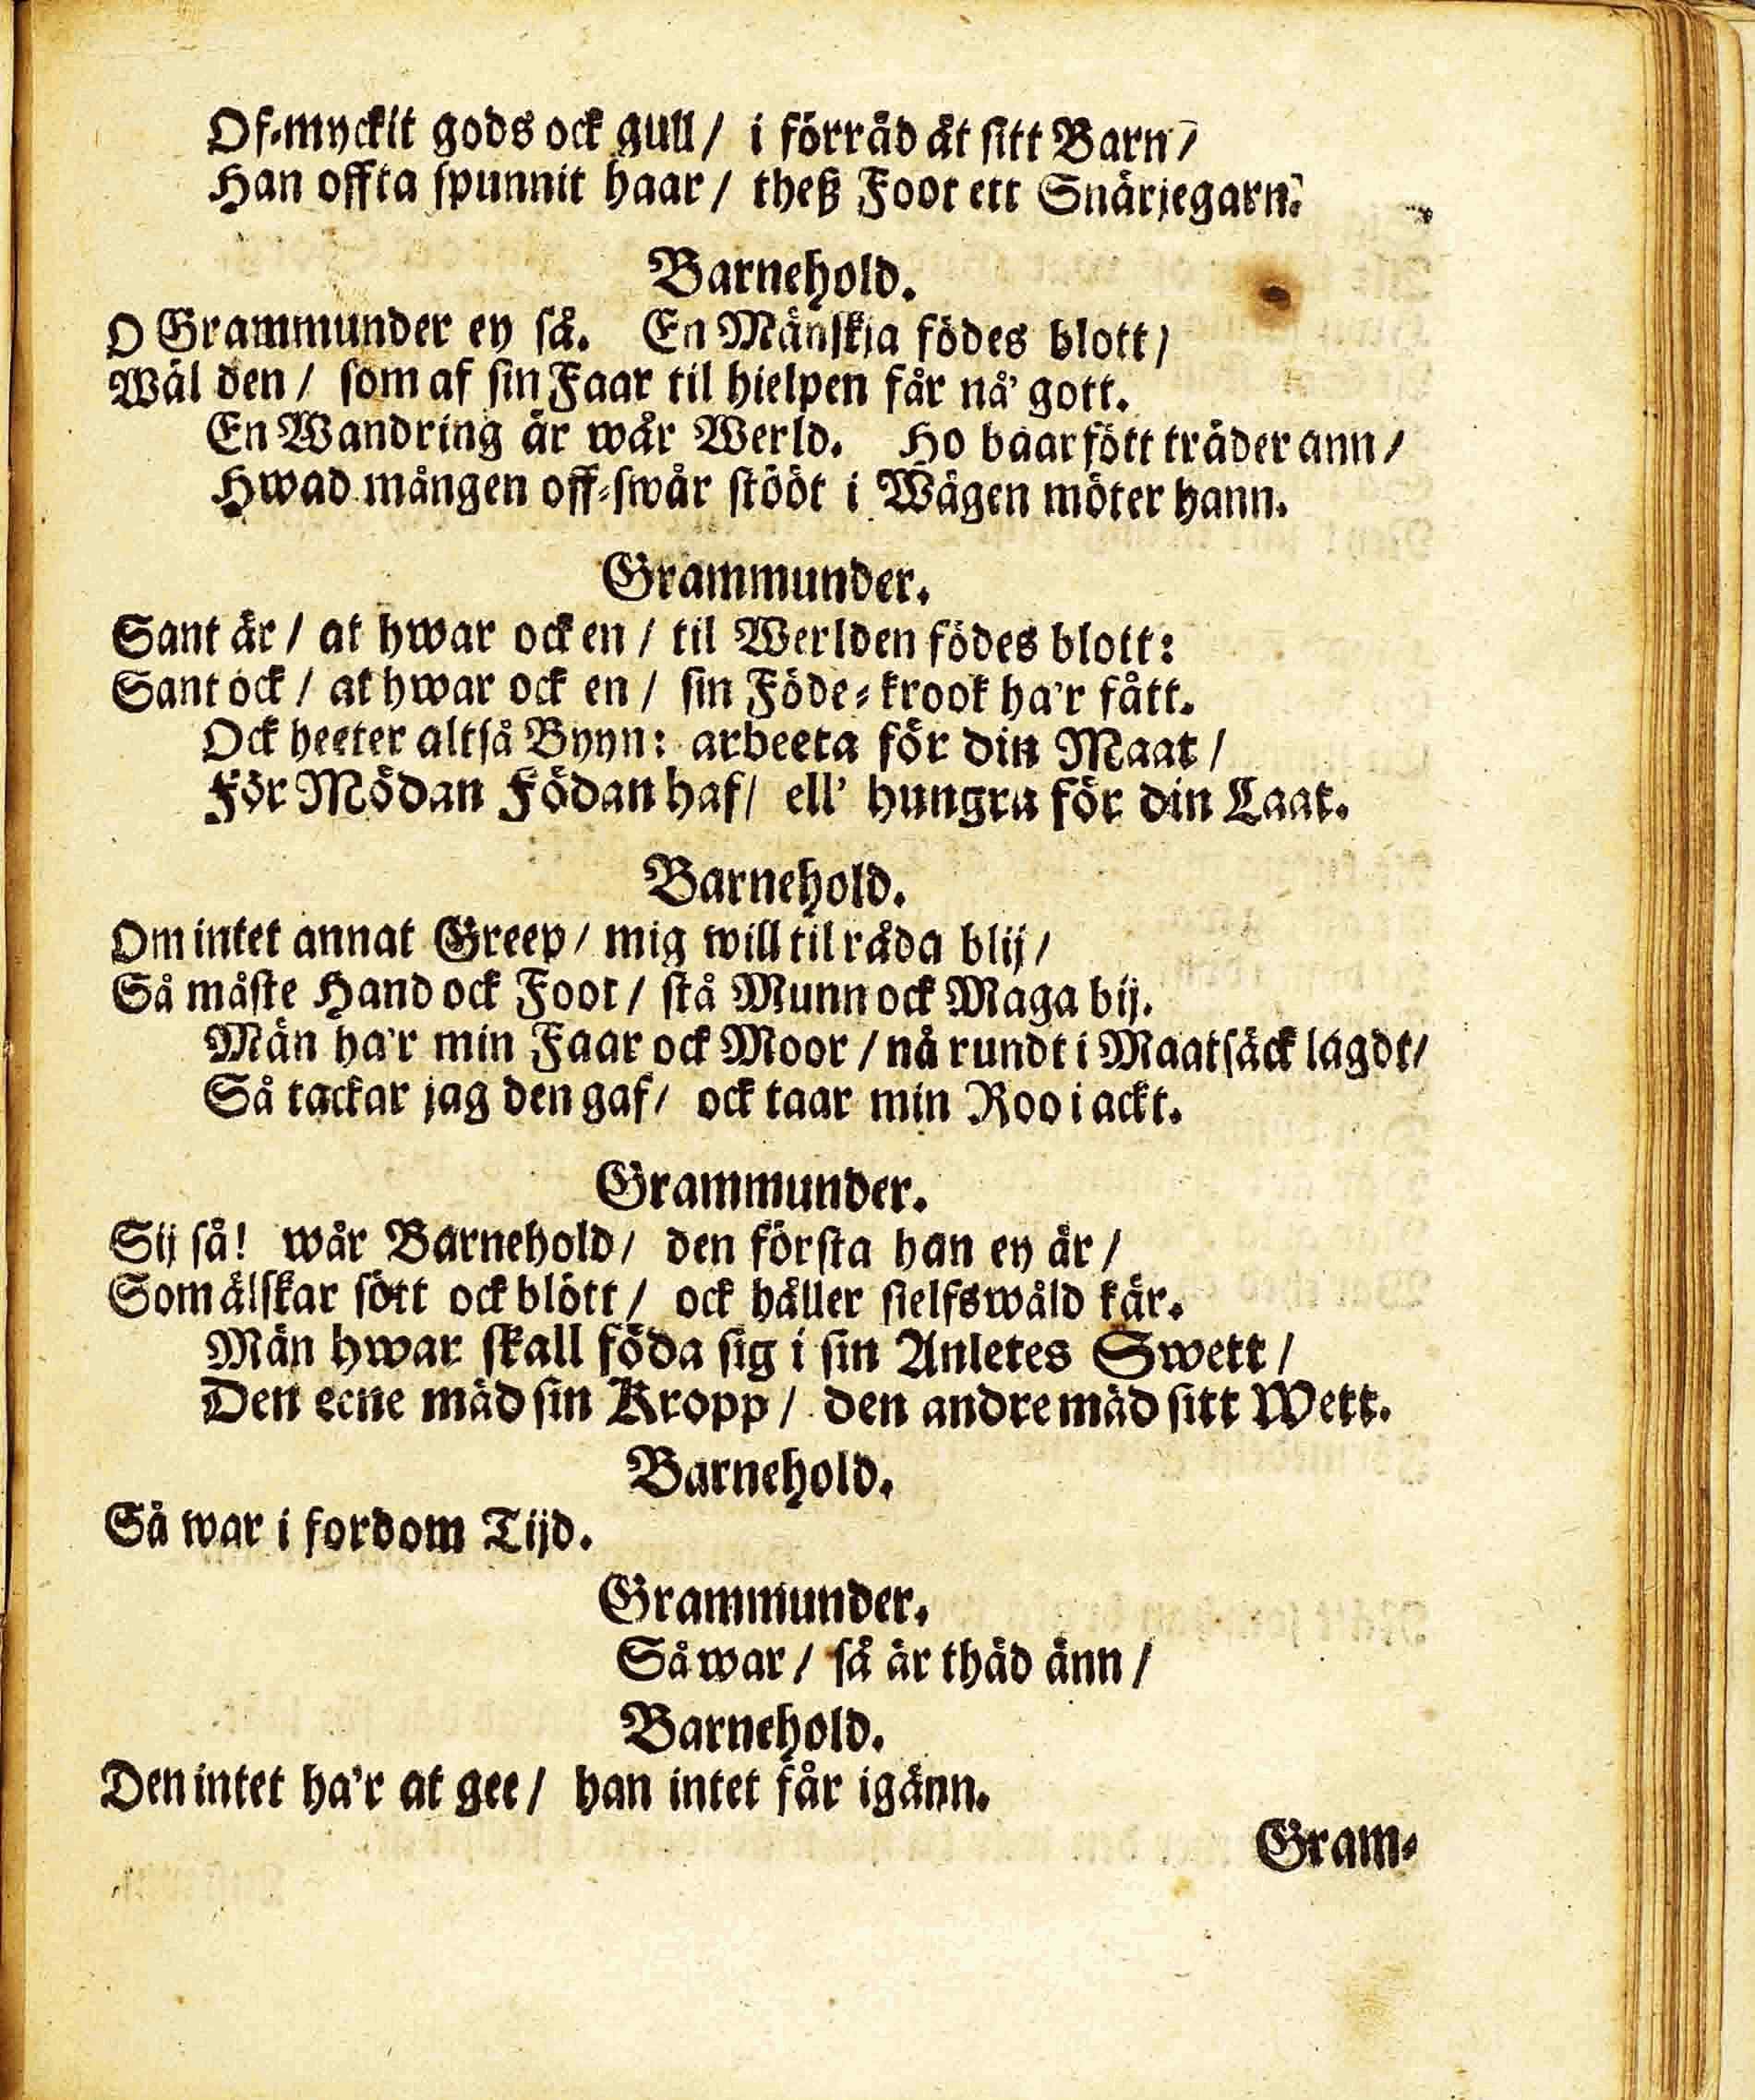 Of-myckit gods ock gull / i förråd åt sitt Barn /
Han offta spunnit haar / theß Foot ett Snärjegarn.
Barnehold.
O Grammunder ey så. En Mänskja födes blott /
Wäl den / som af sin Faar til hielpen får nå' gott.
En Wandring är wår Werld. Ho baarfött träder ann /
Hwad mången off-swår stööt i Wägen möter hann.
Grammunder.
Sant är / at hwar ock en / til Werlden födes blott:
Sant ock / at hwar ock en / sin Föde-krook ha'r fått.
Ock heeter altså Byyn: arbeeta för din Maat /
För Mödan Födan haf / ell' hungra för din Laat.
Barnehold.
Om intet annat Greep / mig will til råda blij /
Så måste Hand ock Foot / stå Munn ock Maga bij.
Män ha'r min Faar ock Moor / nå rundt i Maatsäck lagdt /
Så tackar jag den gaf / ock taar min Roo i ackt.
Grammunder.
Sij så! wår Barnehold / den första han ey är /
Som älskar sött ock blött / ock håller sielfswåld kär.
Män hwar skall föda sig i sin Anletes Swett /
Den eene mäd sin Kropp / den andre mäd sitt Wett.
Barnehold.
Så war i fordom Tijd.
Grammunder.
Så war / så är thäd änn /
Barnehold.
Den intet ha'r at gee / han intet får igänn.
Gram-